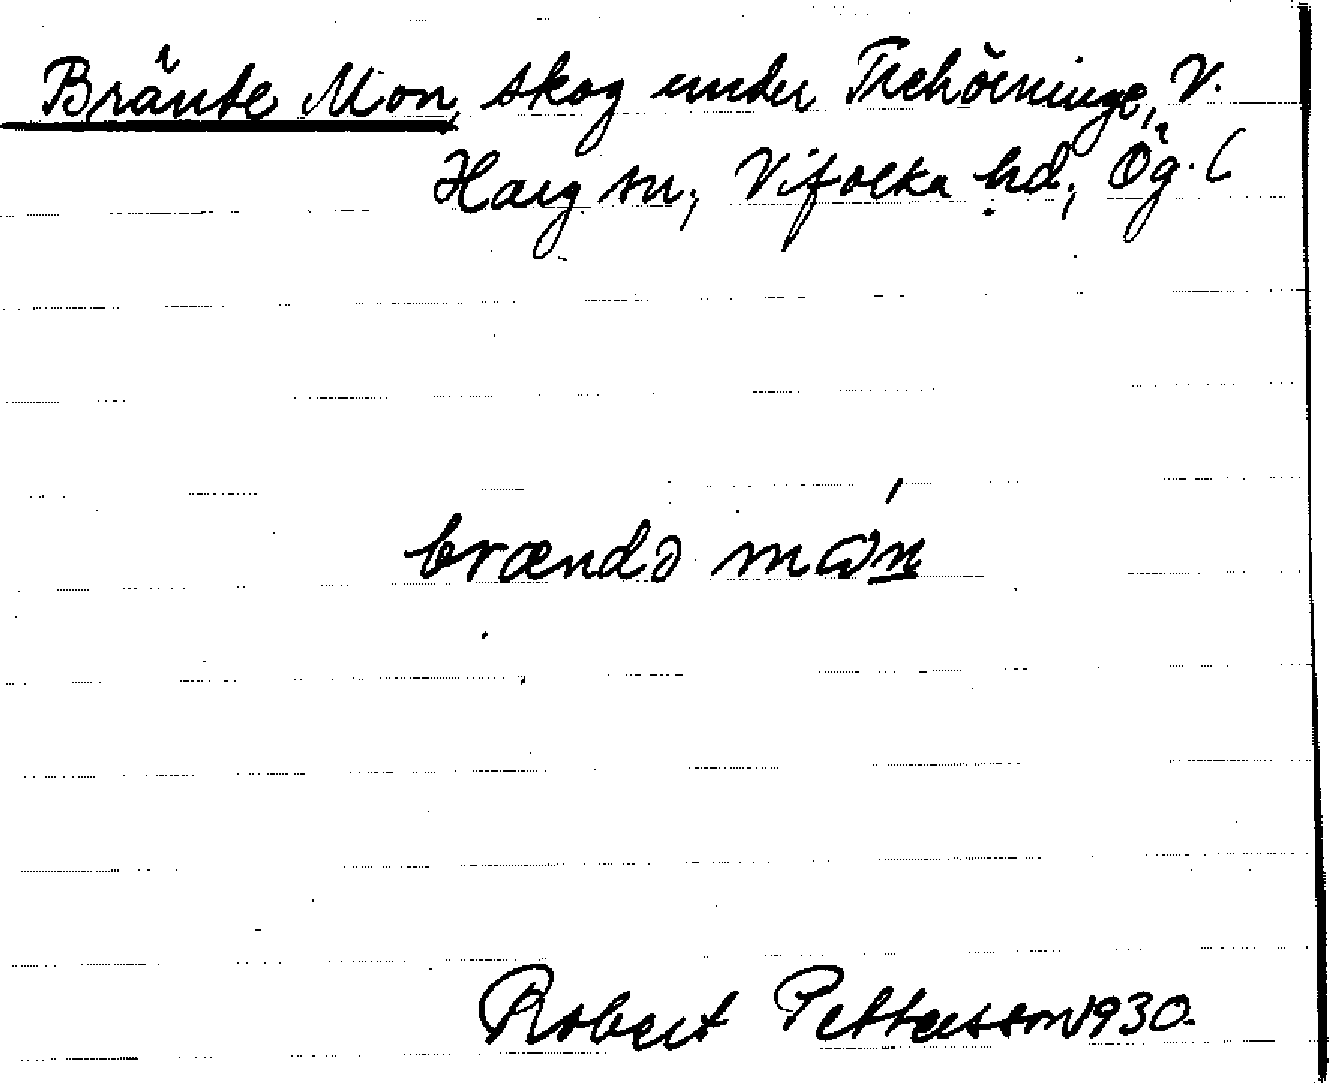 Bränte Mon, skog under Trehörninge, V.
Harg sn, Vifolka hd, Ög. (
brændə mɷ́n
Robert Pettersson 1930.